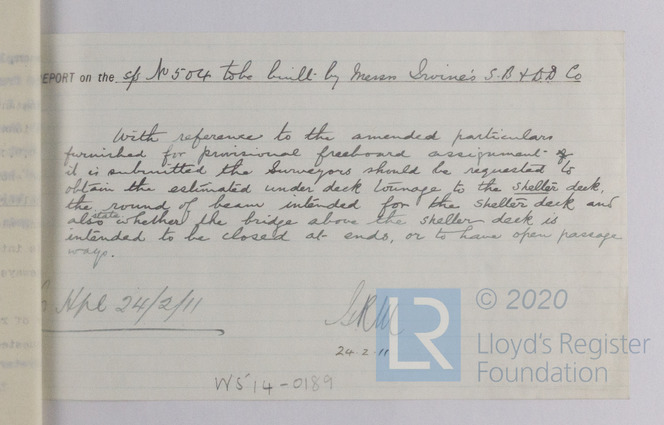 REPORT on the s/s No 504 to be built by Messrs Irvine's S.B & D.D. Co
With reference to the amended particulars
furnished for provisional freeboard assignment
it is submitted the Surveyors should be requested to
obtain the estimated under deck tonnage to the shelter deck,
the round of beam intended for the shelter deck and
also state whether the bridge above the shelter deck is
intended to be closed at ends, or to have open passage
ways.
Hpl 24/2/11
24.2.11
W514-0189
LR
© 2020
Lloyd's Register
Foundation